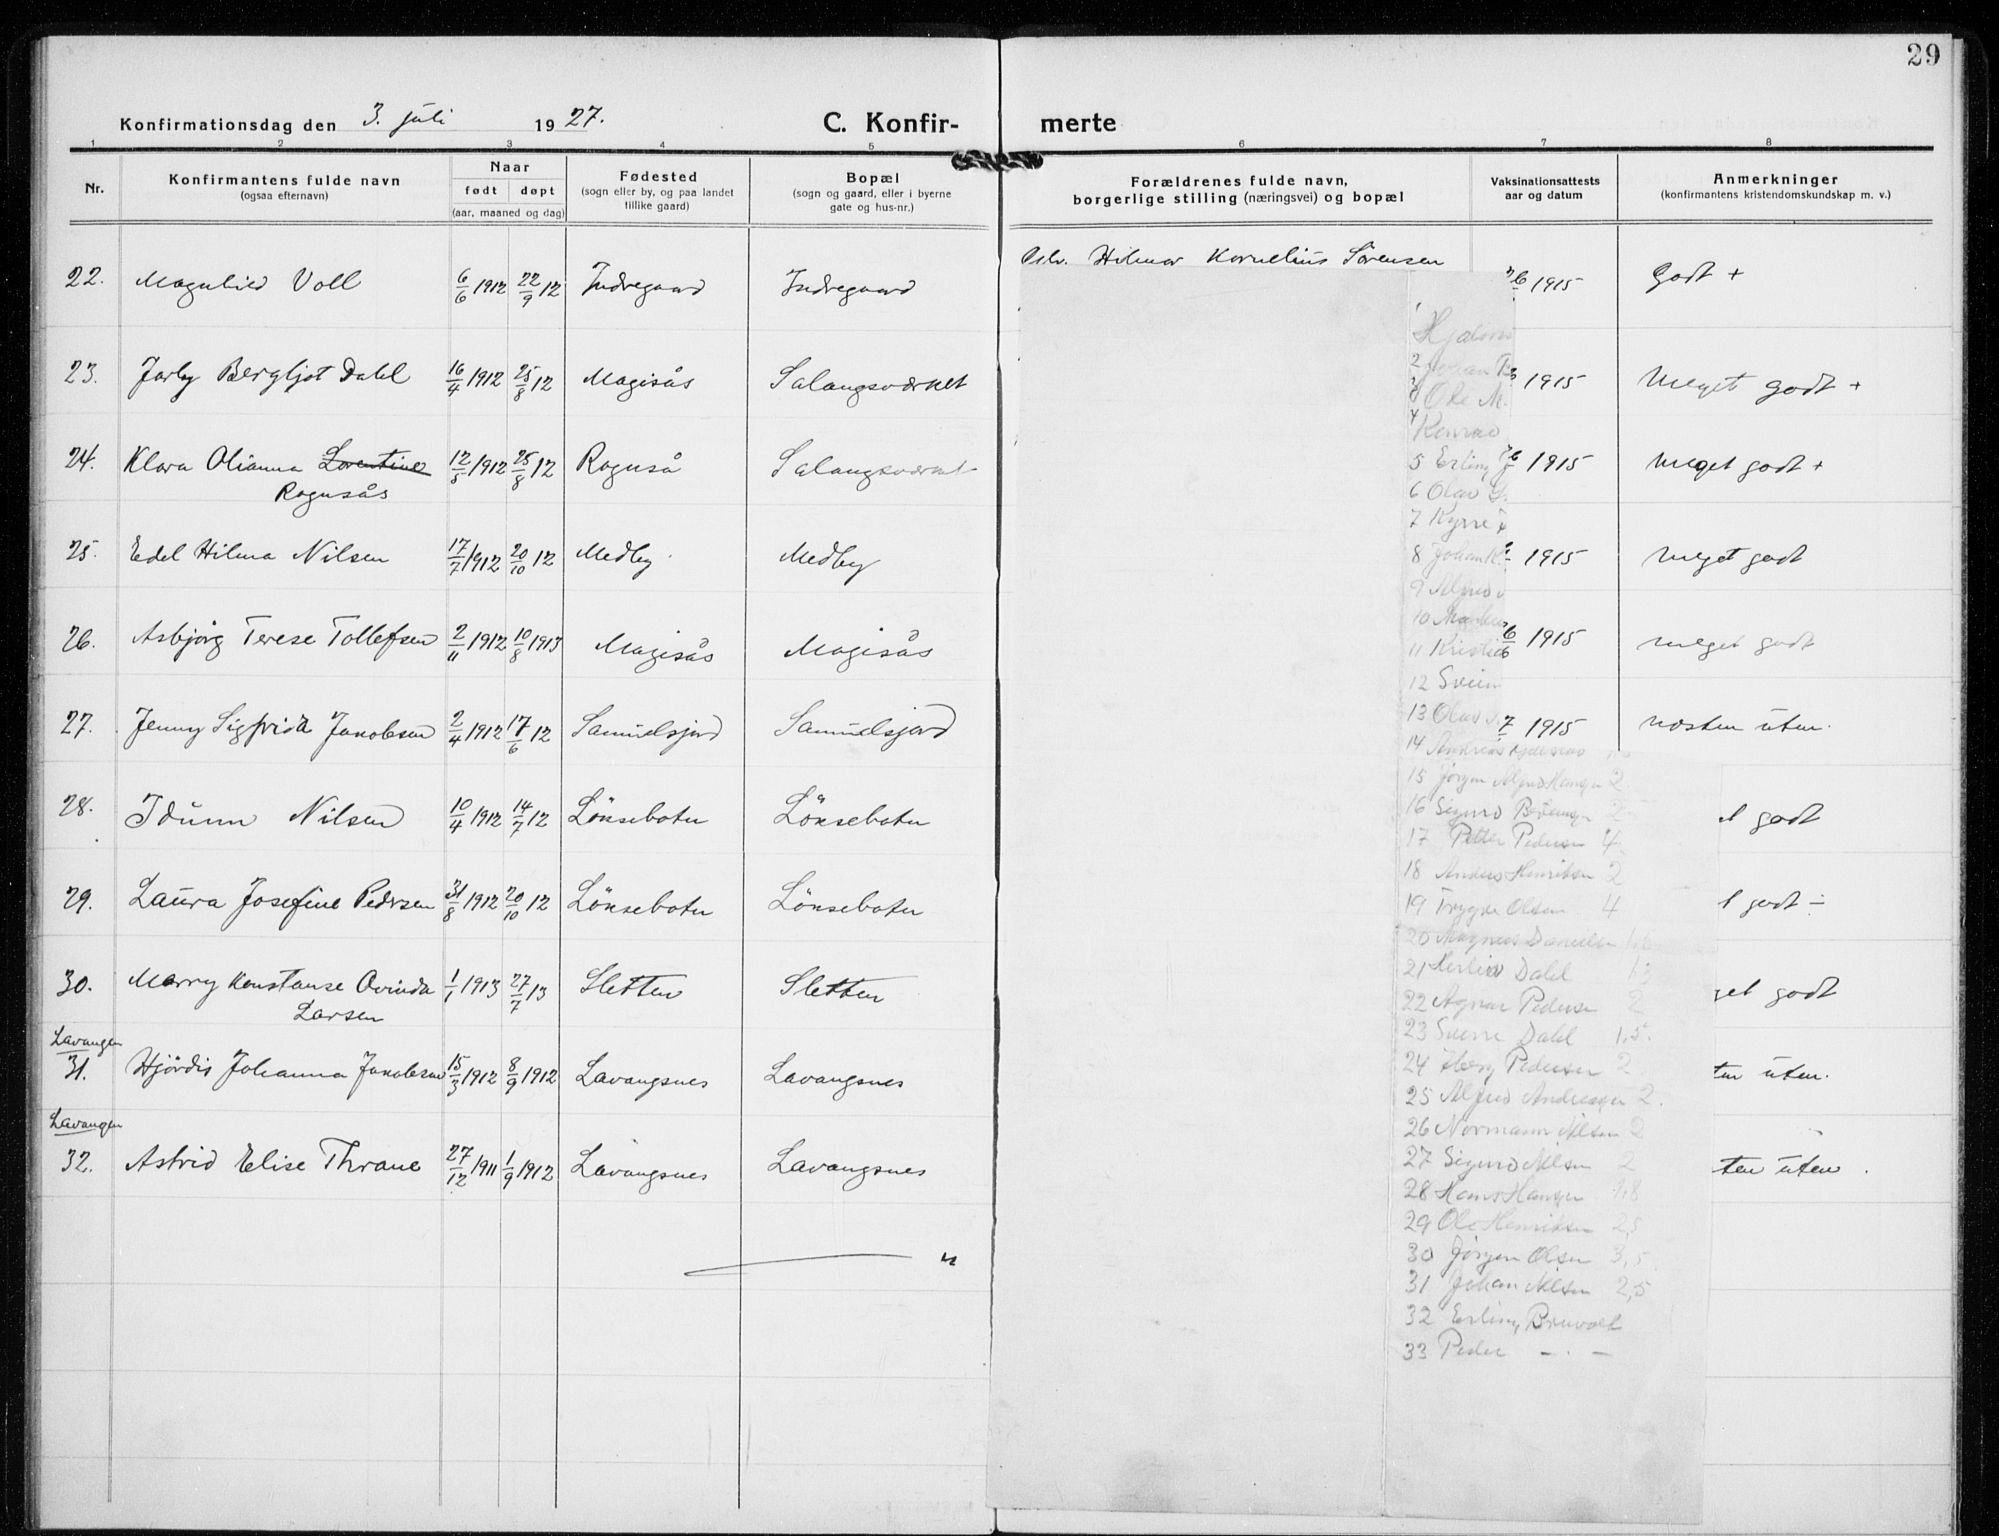 29
Konfirmationsdag den 3. juli 1927.
C. Konfir-
merte
1 2 3 4 5 6 7 8
Nr.
Konfirmantens fulde navn
(ogsaa efternavn)
Naar
født døpt
(aar, maaned og dag)
Fødested
(sogn eller by, og paa landet
tillike gaard)
Bopæl
(sogn og gaard, eller i byerne
gate og hus-nr.)
Forældrenes fulde navn,
borgerlige stilling (næringsvei) og bopæl
Vaksinationsattests
aar og datum
Anmerkninger
(konfirmantens kristendomskundskap m. v.)
Hilmar Kornelius Sørensen
22. Magnhild Voll 6/6 1912 22/9 12 Indregaard Indregaard 1915 Godt +
23. Jarly Bergljot Dahl 16/4 1912 25/8 12 Magisås Salangsverket 1915 Meget godt +
24. Klara Olianna Lorentine 12/5 1912 25/8 12 Rognså Salangsverket 1915 Meget godt +
Rognsås
25. Edel Hilma Nilsen 17/7 1912 20/10 12 Medby Medby 1915 Meget godt
26. Asbjørg Terese Tollefsen 2/11 1912 10/8 1913 Magisås Magisås 6/6 1915 meget godt
27. Jenny Sigfrida Jakobsen 2/4 1912 17/6 12 Samuelsjord Samuelsjord 7 1915 næsten uten.
28. Idunn Nilsen 10/4 1912 14/7 12 Lönsebotn Lönsebotn godt
29. Laura Josefine Pedersen 31/8 1912 20/10 12 Lönsebotn Lönsebotn godt ÷
30. Marry Konstanse Ovinda 1/1 1913 27/7 13 Sletten Sletten get godt
Larsen
Lavangen
31. Hjördis Johanna Jakobsen 15/3 1912 8/9 1912 Lavangsnes Lavangsnes ten uten.
Lavangen
32. Astrid Elise Thrane 27/12 1911 1/9 1912 Lavangsnes Lavangsnes ten uten.
Hjalmar
2 Johan
3 Ole M.
4 Konrad
5 Erling
6 Olav
7 Kyrre
8 Johan K.
9 Alfred
10
11 Kristia
12 Svein
13 Olav
14 Andreas
15 Jørgen Alfred Hansen 2
16 Sigurd 2
17 Petter Pedersen 4
18 Anders Henriksen 2
19 Trygve Olsen 4
20 Magnus Danielsen
21 Dahl
22 Agnar Pedersen 2
23 Sverre Dahl 1,5
24 Pedersen 2
25 Alfred Andreasen 2.
26 Normann Nilsen 2
27 Sigurd Nilsen 2
28 Hans Hansen 1,8
29 Ole Henriksen 2,5
30 Jørgen Olsen 3,5
31 Johan Nilsen 2,5
32 Erling Bruvoll
33 Peder — . —